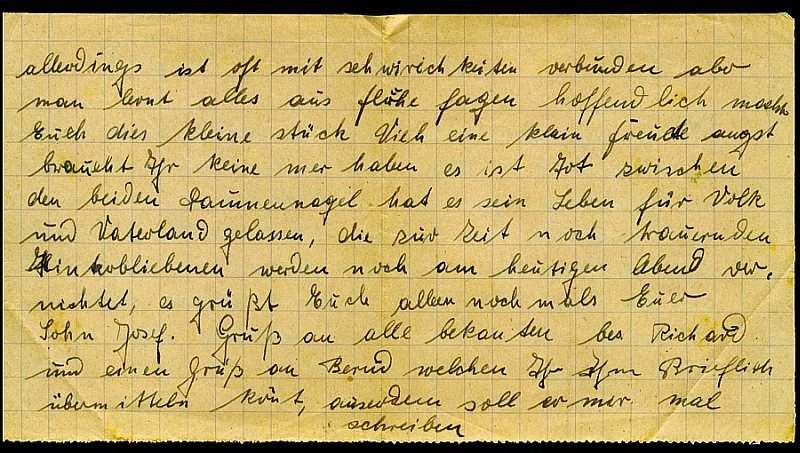 allerdings ist oft mit schwirichkeiten verbunden aber
man lernt alles aus flöhe fagen hoffendlich macht
Euch dies kleine stück Vieh eine klein freude angst
braucht Ihr keine mer haben es ist Tot zwischen
den beiden Daumennagel hat es sein Leben für Volk
und Vaterland gelassen, die zur Zeit noch trauernden
Hinkobliebenen werden noch am heutigen Abend ver-
nichtet, es grüßt Euch allen nochmals Euer
Sohn Josef. Gruß an alle bekanten bes Richard
und einen Gruß an Bernd welchen Ihr Ihm Brieflich
übermitteln könt, auserdem soll er mir mal
schreiben